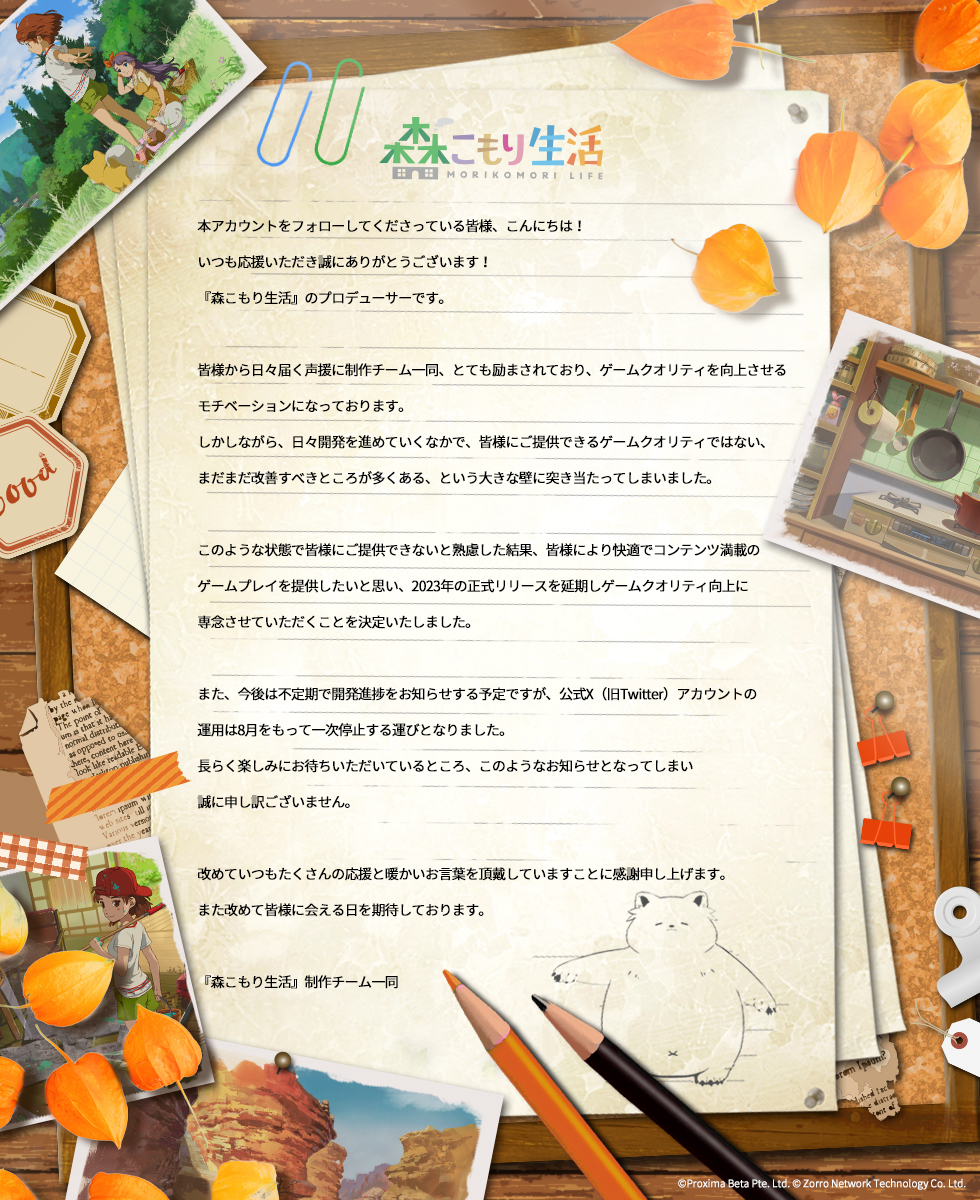 森こもり生活
MORIKOMORI LIFE
本アカウントをフォローしてくださっている皆様、こんにちは！
いつも応援いただき誠にありがとうございます！
『森こもり生活』のプロデューサーです。
皆様から日々届く声援に制作チーム一同、とても励まされており、ゲームクオリティを向上させる
モチベーションになっております。
しかしながら、日々開発を進めていくなかで、皆様にご提供できるゲームクオリティではない、
まだまだ改善すべきところが多くある、という大きな壁に突き当たってしまいました。
このような状態で皆様にご提供できないと熟慮した結果、皆様により快適でコンテンツ満載の
ゲームプレイを提供したいと思い、2023年の正式リリースを延期しゲームクオリティ向上に
専念させていただくことを決定いたしました。
また、今後は不定期で開発進捗をお知らせする予定ですが、公式X（旧Twitter）アカウントの
運用は8月をもって一次停止する運びとなりました。
長らく楽しみにお待ちいただいているところ、このようなお知らせとなってしまい
誠に申し訳ございません。
改めていつもたくさんの応援と暖かいお言葉を頂戴していますことに感謝申し上げます。
また改めて皆様に会える日を期待しております。
『森こもり生活』制作チーム一同
by the
page when
The point of
um is that it ha
normal distribut
as opposed to us
there, content here
look like readable E
desktop publishi
lorem ipsum w
web sites
Various version
over the year
©Proxima Beta Pte. Ltd. © Zorro Network Technology Co. Ltd.